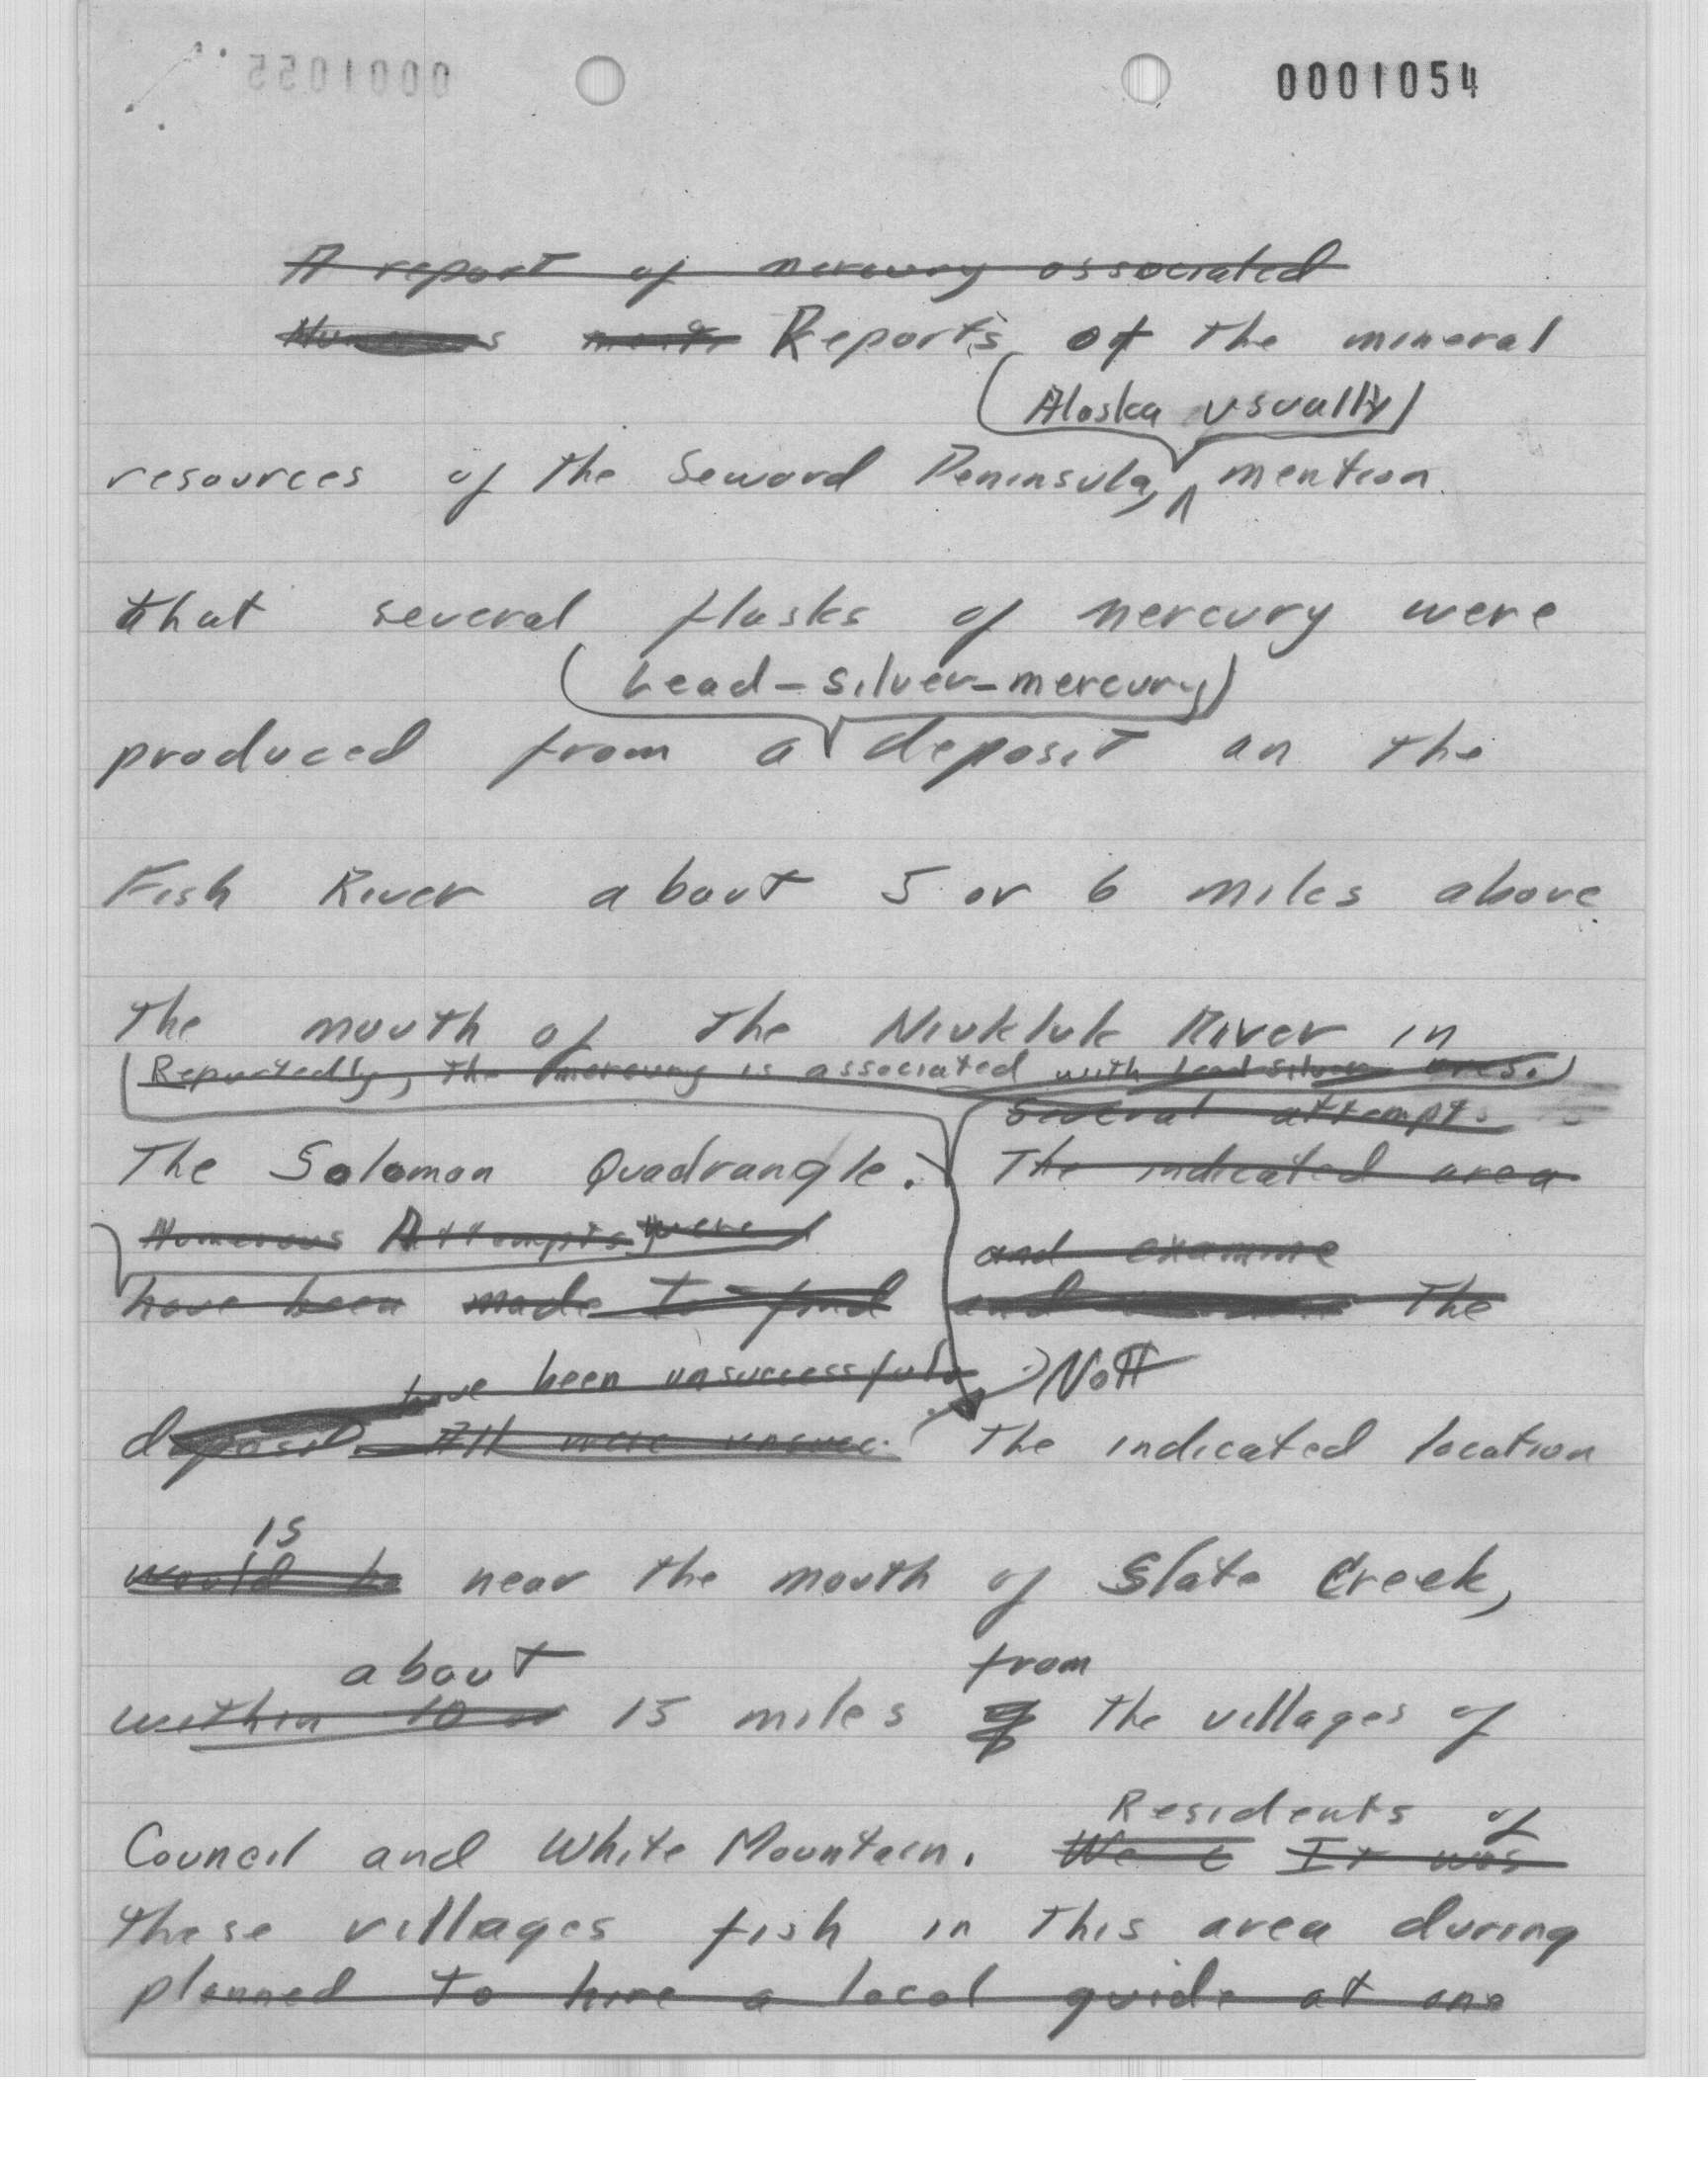 0001055 0001054
A report of mercury associated
Reports of the mineral
Alaska usually
resources of the Seward Peninsula, mention
that several flasks of mercury were
Lead-silver-mercury
produced from a deposit on the
Fish River about 5 or 6 miles above
the mouth of the Niukluk River in
Reportedly, the mercury is associated with Lead-silver ores.
Several attempts
The Solomon Quadrangle. The indicated area
Numerous Attempts were
and examine
have been made to find and the
have been unsuccessful. No ¶
deposit. All were unsuc. The indicated location
is
would be near the mouth of Slate Creek,
about from
within 10 or 15 miles of the villages of
Residents of
Council and White Mountain. We It was
these villages fish in this area during
planned to hire a local guide at one